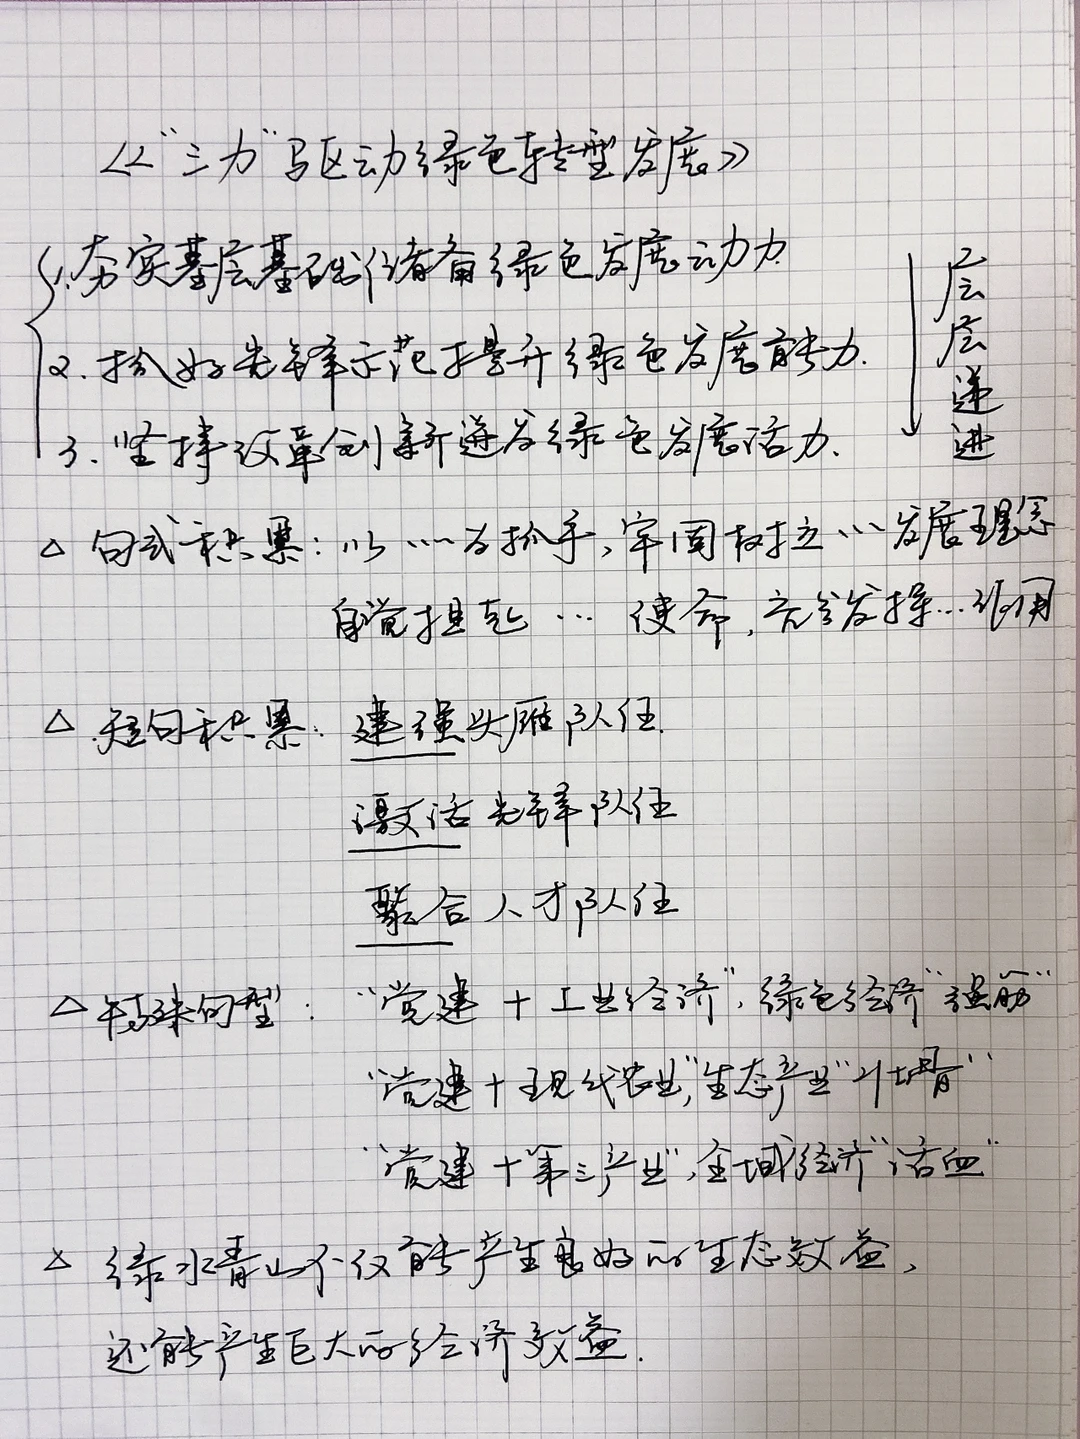 《“三力”驱动绿色转型发展》
1.夯实基层基础储备绿色发展动力.
2.抓好先锋示范提升绿色发展能力.
3.坚持改革创新迸发绿色发展活力.
层层递进
△ 句式积累:以……为抓手,牢固树立…发展理念
自觉担起… 使命,充分发挥…作用
△ 短句积累:建强头雁队伍.
激活先锋队伍
聚合人才队伍
△特殊句型: “党建+工业经济”,绿色经济“强筋”
“党建+现代农业”,生态产业“壮骨”
“党建+第三产业”,全域经济“活血”
△ 绿水青山不仅能产生良好的生态效益,
还能产生巨大的经济效益.